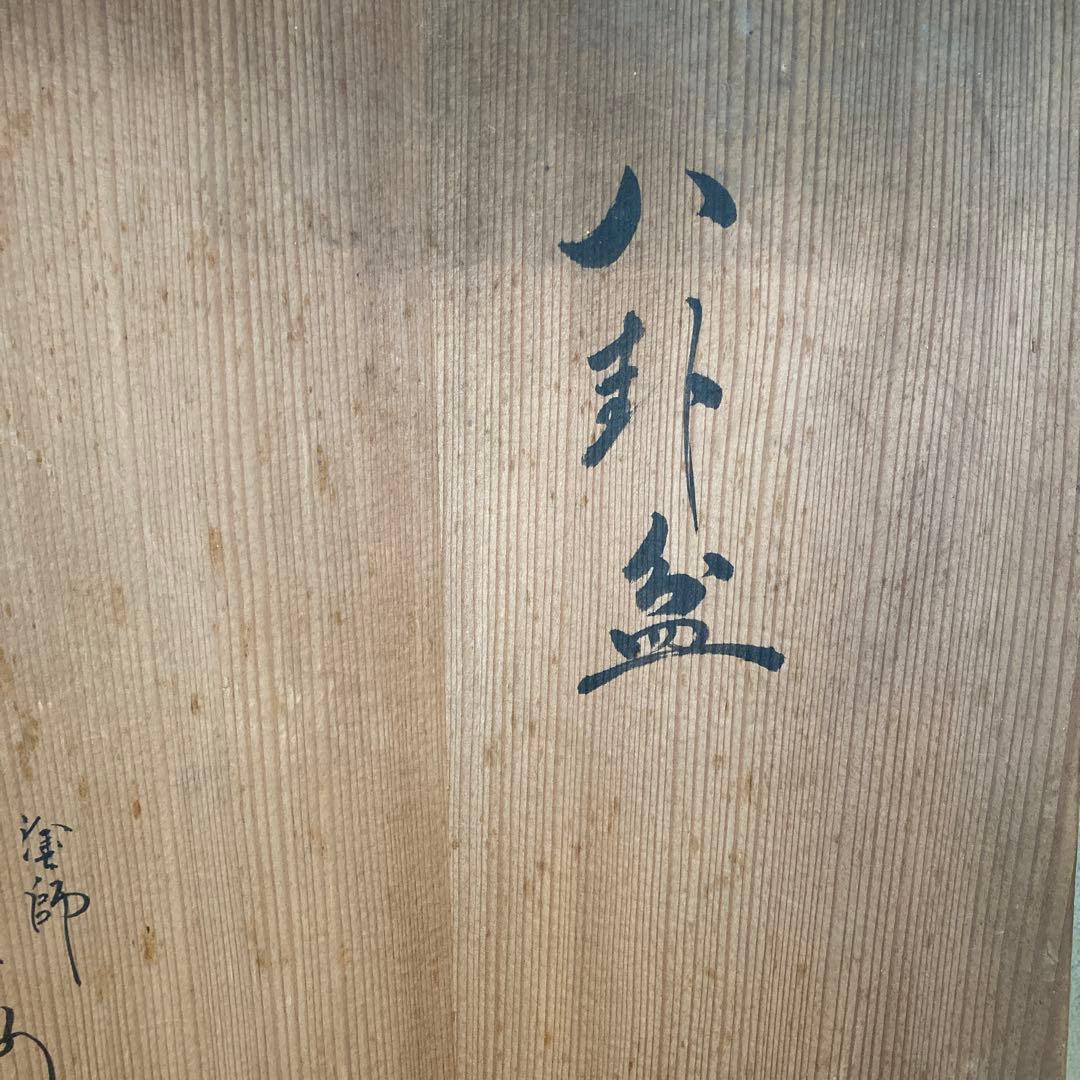 八卦盆
塗師